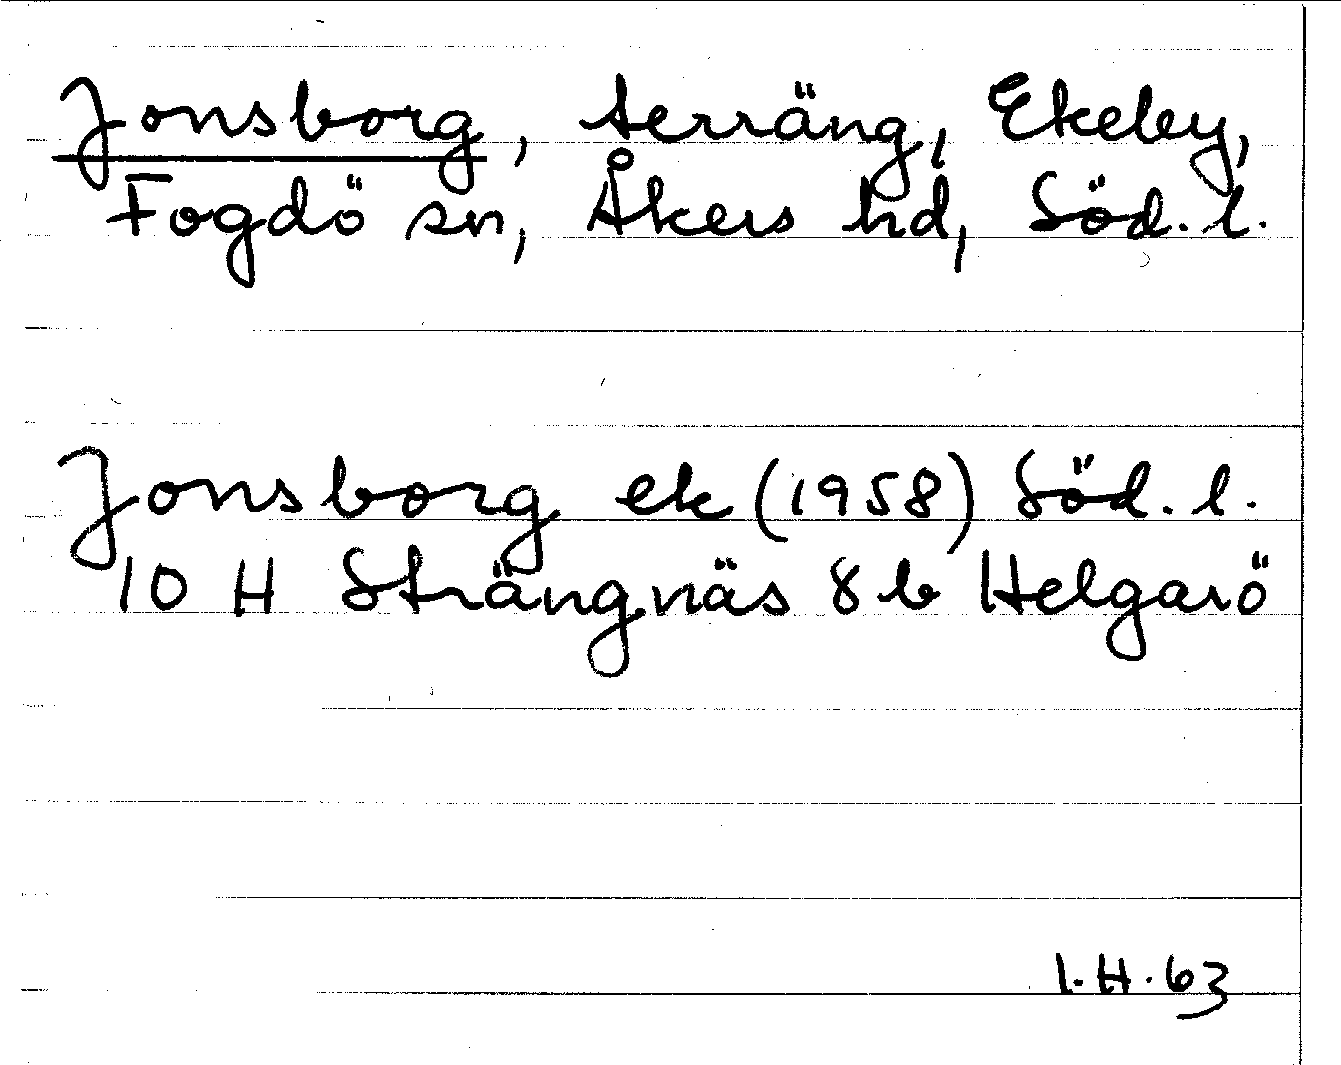 Jonsborg, terräng, Ekeby,
Fogdö sn, Åkers hd, Söd. l.
Jonsborg ek (1958) Söd. l.
10 H Strängnäs 8 b Helgarö
I.H. 63